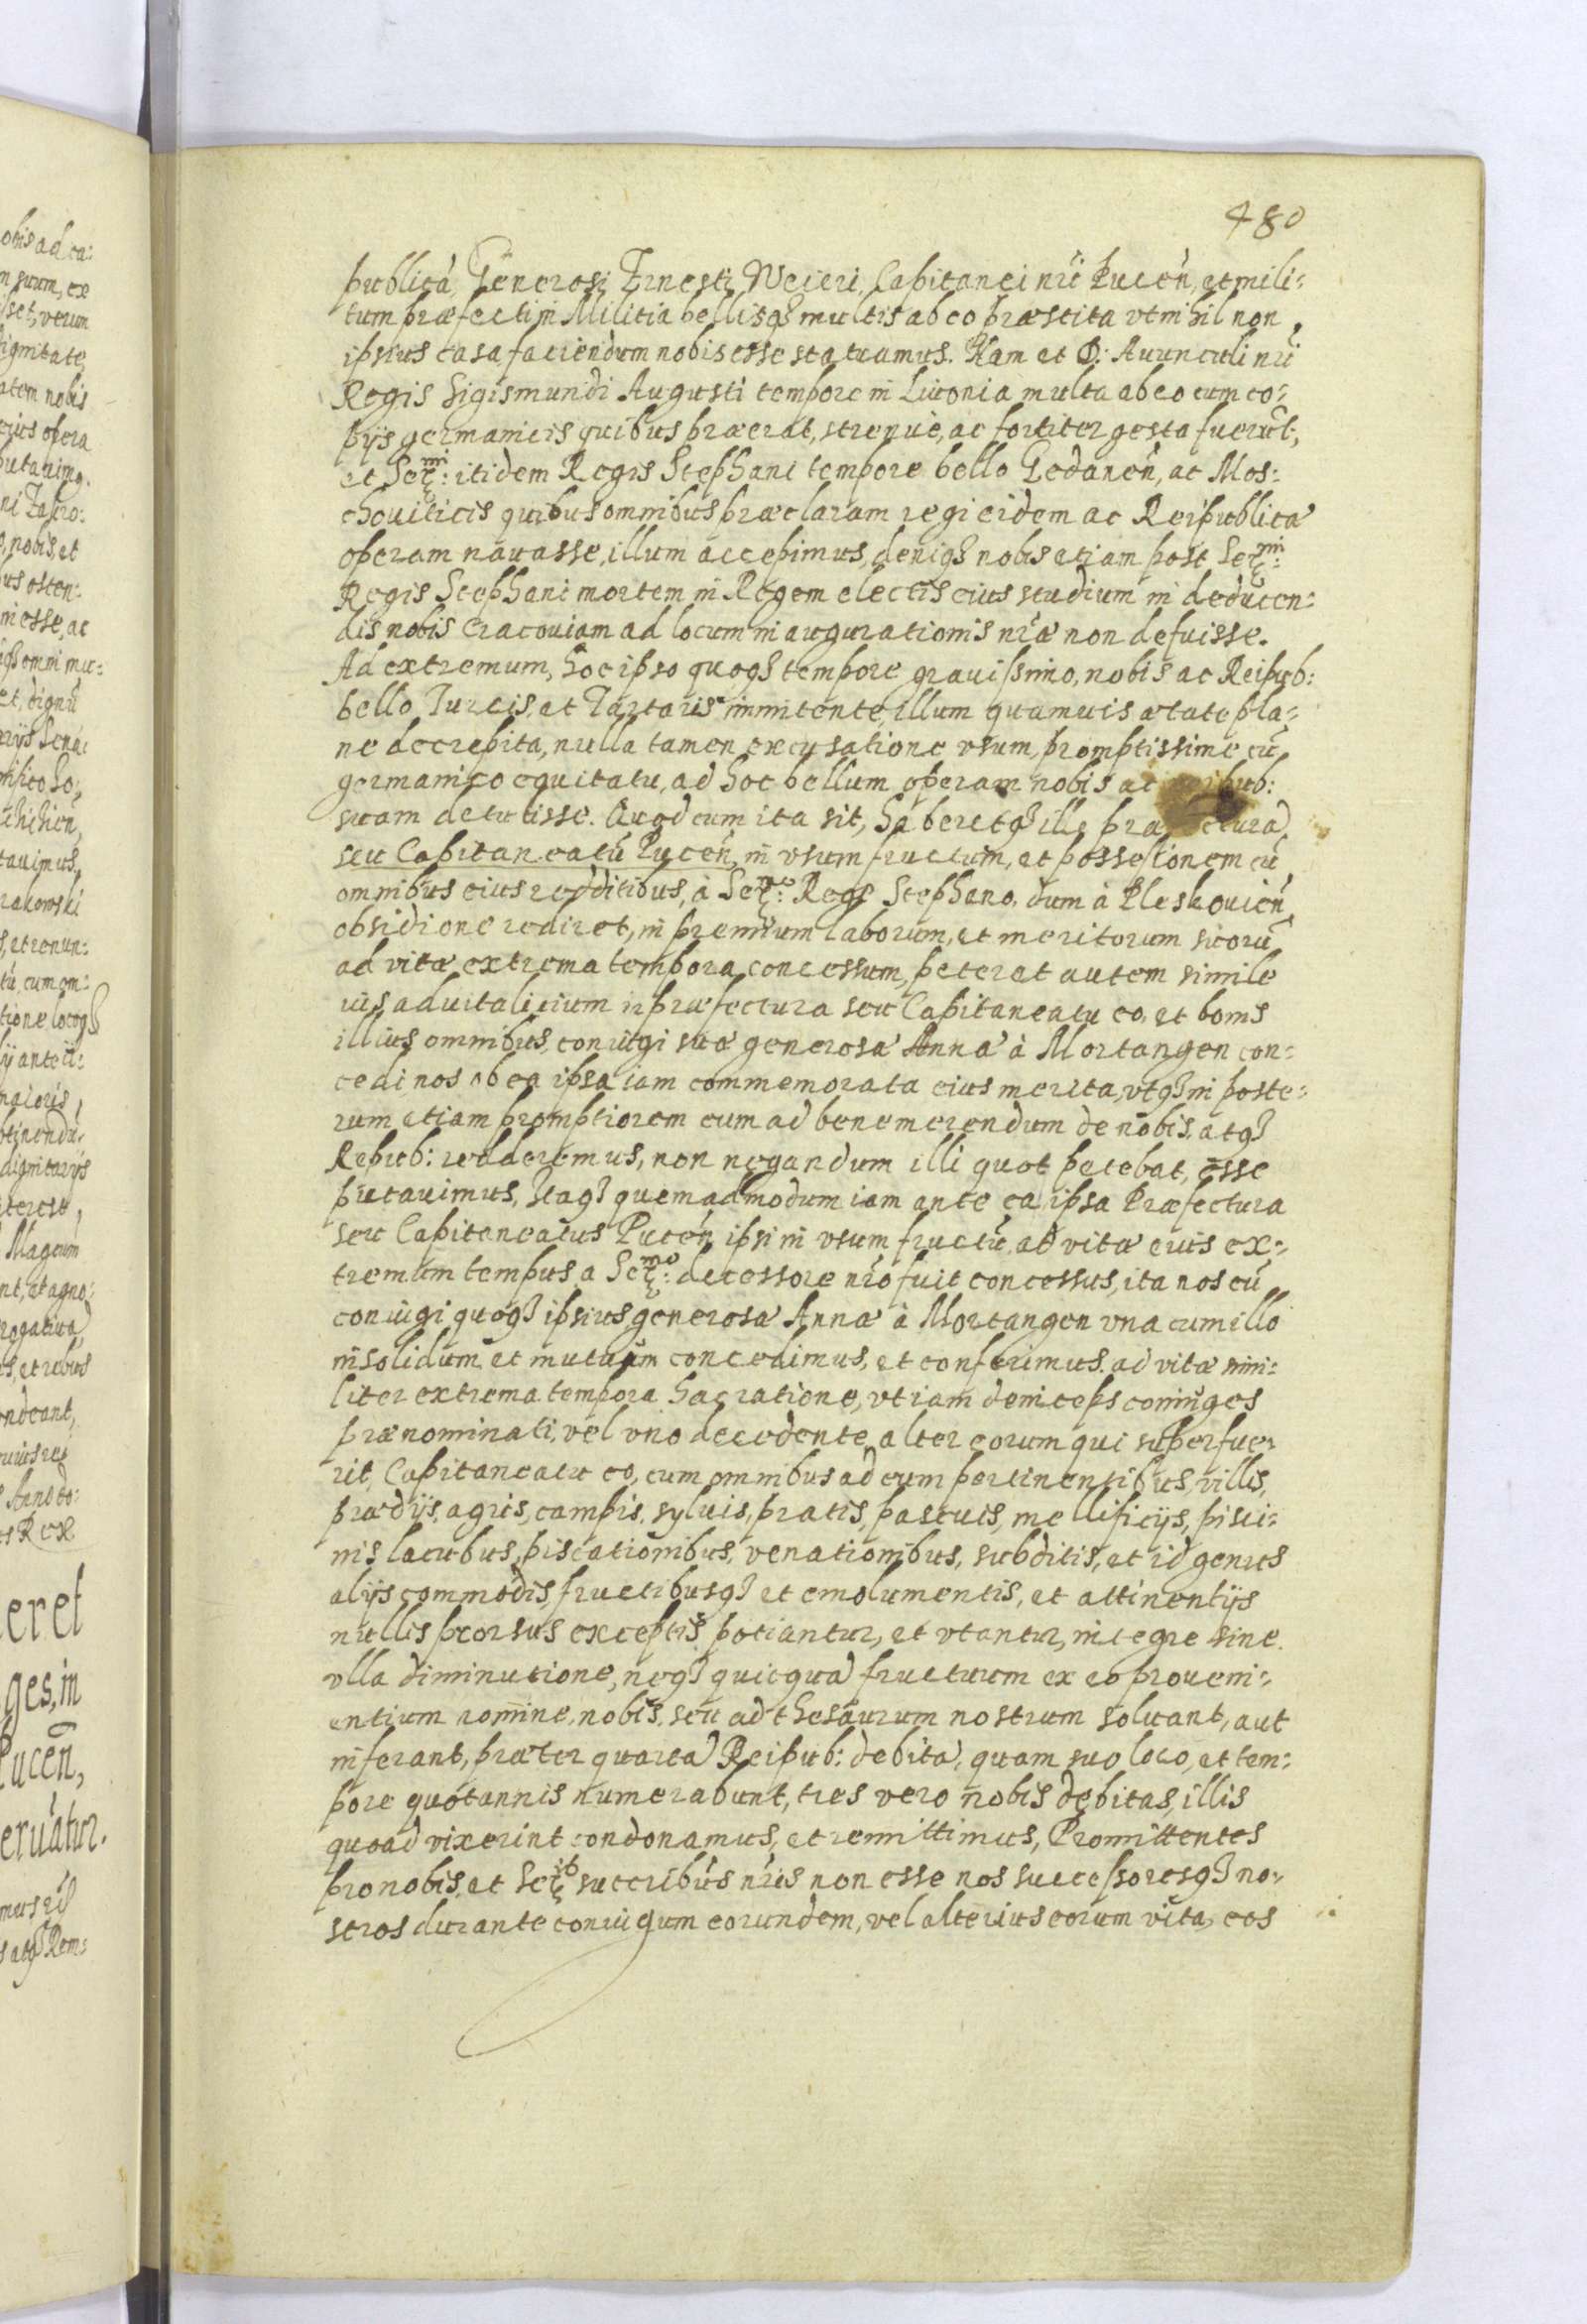 480
publicā, Generosi Ernesti Weieri, Capitanei nr̃i Pucen̄, et mili:
tum præfecti in Militia bellisq₃ multis ab eo præstita vt nihil non
ipsius casa faciendum nobis esse statuamus. Nam et D: Auunculi nr̃i
Regis Sigismundi Augusti tempore in Liuonia multa ab eo cum co:
pijs germanicis quibus præerat, strenue, ac fortiter gesta fuerūt,
et Ser̃ᵐⁱ: itidem Regis Stephani tempore bello Gedanen̄, ac Mos:
chouiticis quibus omnibus præclaram regi eidem ac Reipublicæ
operam nauasse, illum accepimus, deniq₃ nobis etiam post Ser̃ᵐⁱ:
Regis Stephani mortem in Regem electis eius studium in deducen:
dis nobis Cracouiam ad locum inaugurationis nr̃æ non defuisse.
Ad extremum, hoc ipso quoq₃ tempore grauissimo, nobis ac Reipub:
bello Turcis, et Tartaris imminente, illum quamuis ætate pla:
ne decrepita, nulla tamen excusatione vsum, promptissime cū
germanico equitatu, ad hoc bellum operam nobis ac
suam detulisse. Quod cum ita sit, haberetq₃ ille
seu Capitaneatū Pucen̄, in vsum fructum, et possessionem cū
omnibus eius redditibus, à Ser̃ᵐᵒ: Rege Stephano, dum à Pleskouien̄
obsidione rediret, in premium laborum, et meritorum suorū
ad vitæ extrema tempora concessum, peterat autem simile
ius aduitalitium in præfectura seu Capitaneatu eo, et bonis
illius omnibus, coniugi suæ generosæ Annæ à Mortangen con:
cedi nos ob ea ipsa iam commemorata eius merita, vtq₃ in poste:
rum etiam promptiorem eum ad benemerendum de nobis, atq₃
Repub: redderemus, non negandum illi quot petebat, esse
putauimus, Itaq₃ quemadmodum iam ante ea ipsa Præfectura
seu Capitaneatus Pucen̄ ipsi in vsum fructū ad vitæ eius ex:
tremum tempus a Ser̃ᵐᵒ: decessore nr̃o fuit concessus, ita nos eū
coniugi quoq₃ ipsius, generosæ Annæ à Mortangen vna cum illo
in solidum et mutuum concedimus, et conferimus, ad vitæ simi:
liter extrema tempora hac ratione, vt iam deinceps coniuges
prænominati, vel vno decedente alter eorum qui superfue:
rit, Capitaneatu eo, cum omnibus ad eum pertinentibus, villis,
prædijs, agris, campis, syluis, pratis, pascuis, mellificijs, pisci:
nis, lacubus, piscationibus, venationibus, subditis, et id genus
alijs commodis, fructibusq₃ et emolumentis, et attinentijs
nullis prorsus exceptis potiantur, et vtantur, integre sine
vlla diminutione, neq₃ quicquā fructuum ex eo proueni:
entium nomine, nobis, seu ad thesaurum nostrum soluant, aut
inferant, præter quartā Reipub: debitā, quam suo loco, et tem:
pore quotannis numerabunt, tres vero nobis debitas, illis
quoad vixerint condonamus, et remittimus, Promittentes
pro nobis, et Ser̃ⁱᵇ succribus nr̃is non esse nos successoresq₃ no:
stros durante coniugum eorundem, vel alterius eorum vita, eos